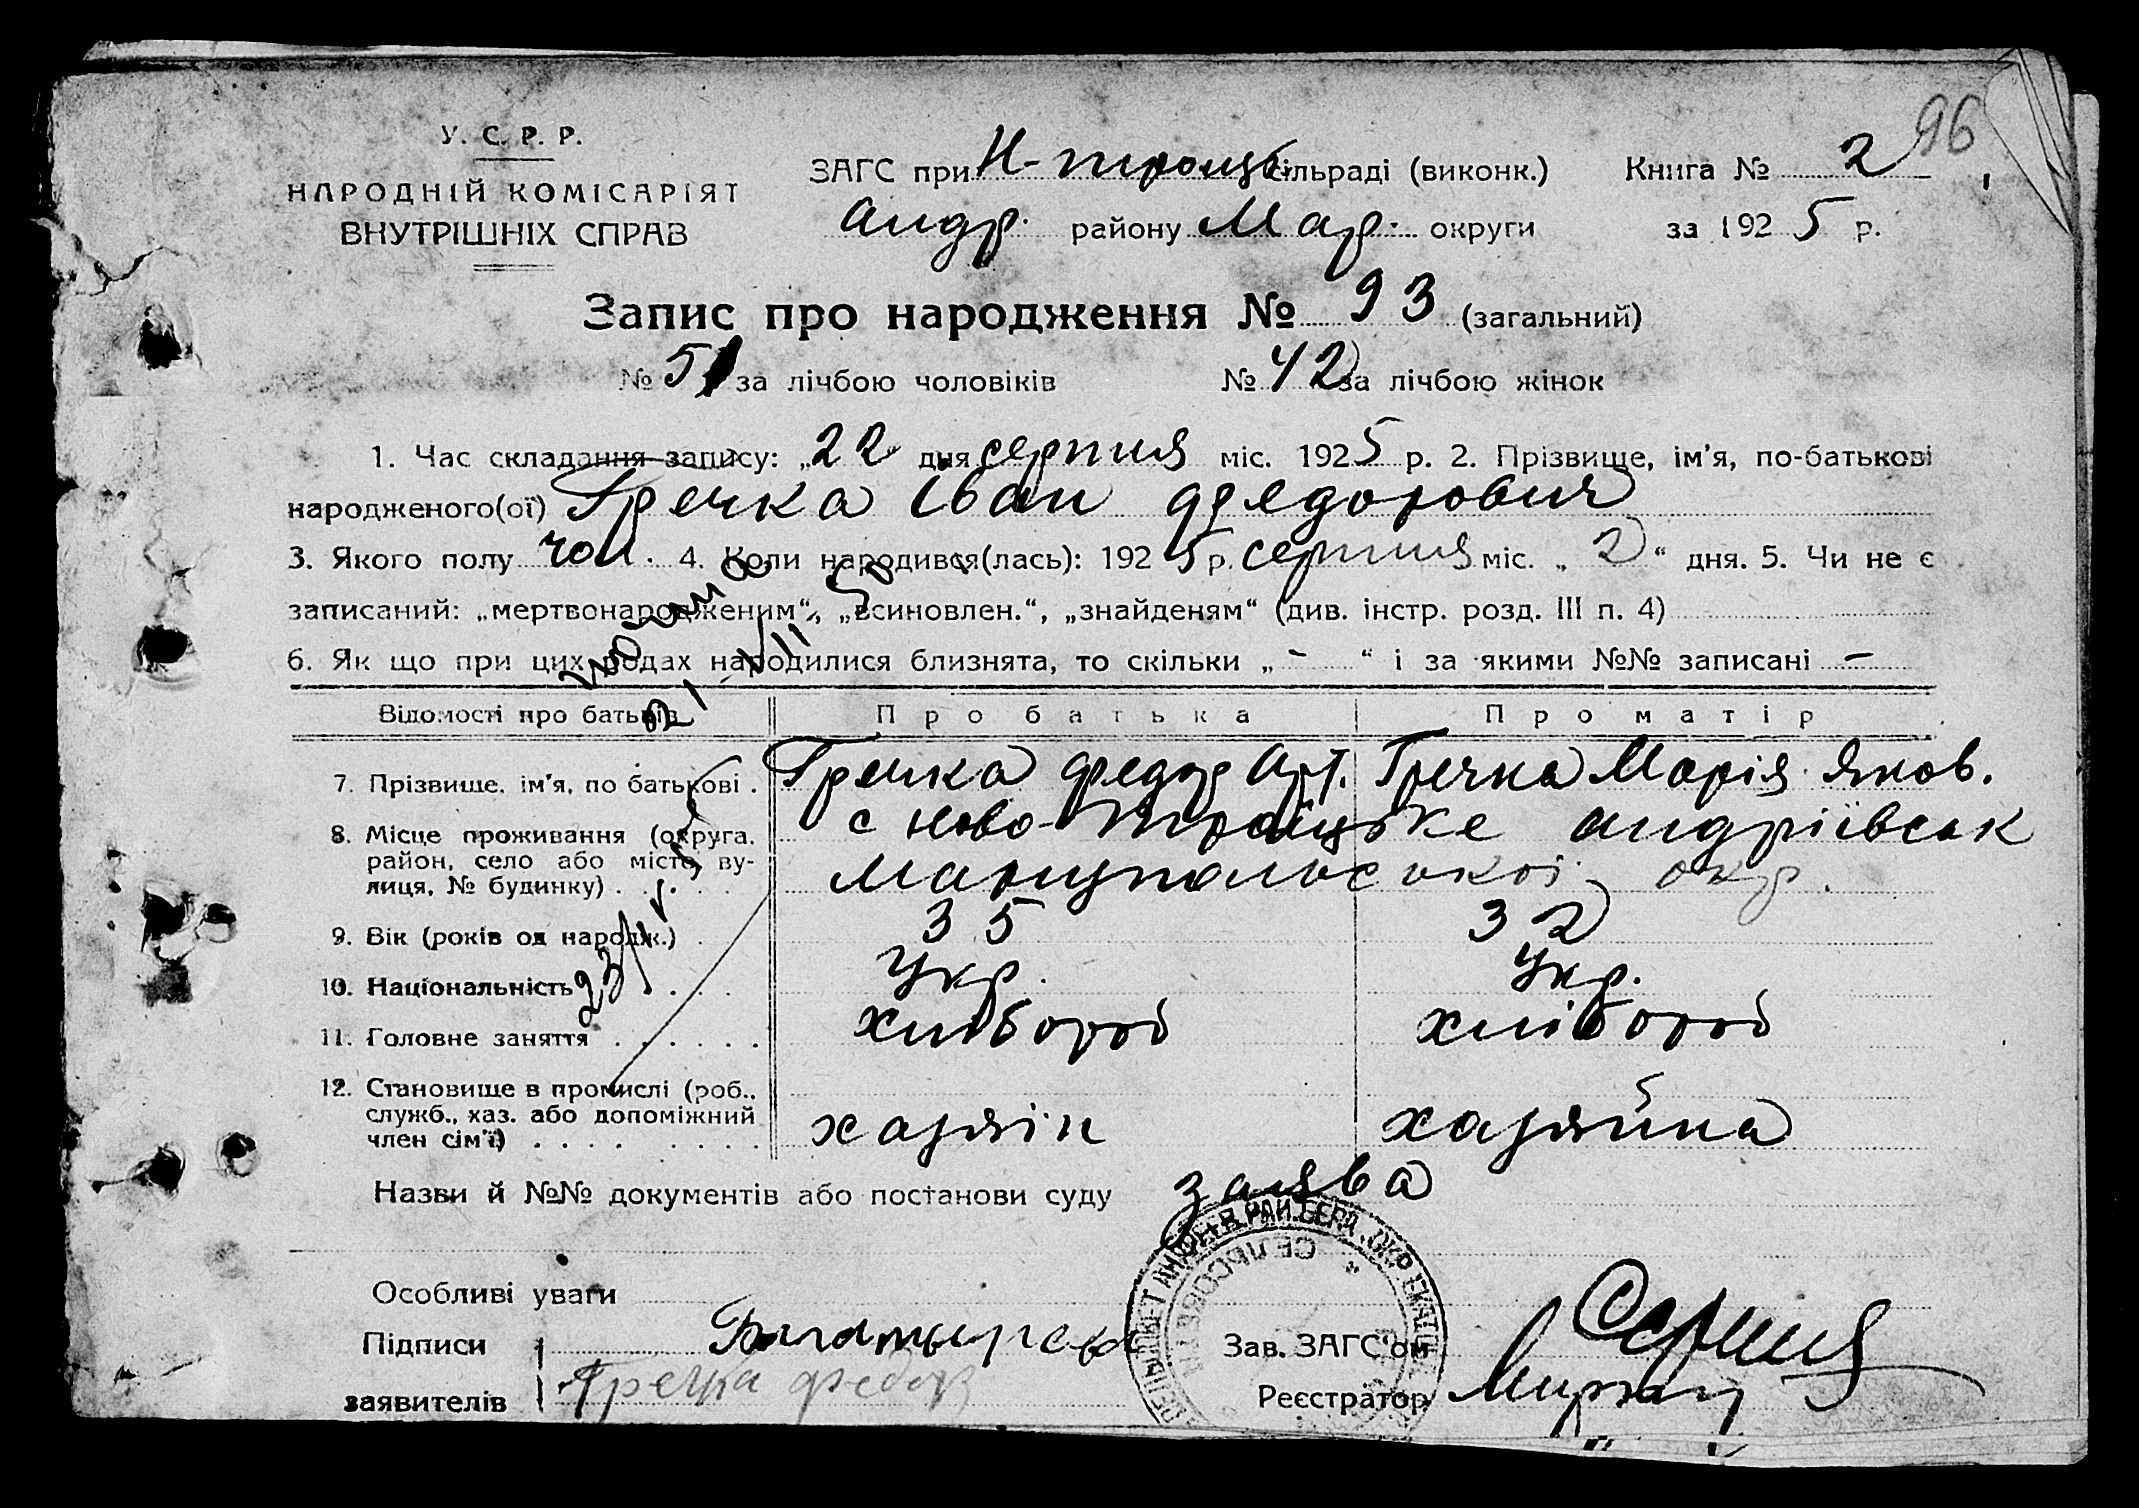 96
У. С. Р. Р.
НАРОДНІЙ КОМІСАРІЯТ
ВНУТРІШНІХ СПРАВ
ЗАГС при Н-Троицьк сільраді (виконк.) Книга № 2
Андр. району Мар. округи за 1925 р.
Запис про народження № 93 (загальний)
№ 51 за лічбою чоловіків № 42 за лічбою жінок
1. Час складання запису: „22 дня серпня міс. 1925 р. 2. Прізвище, ім'я, по-батькові
народженого(ої) Гречка Іван Федорович
3. Якого полу чол. 4. Коли народився(лась): 1925 р. серпня міс. „2“ дня. 5. Чи не є
записаний: „мертвонародженим“, „всиновлен.“, „знайденям“ (див. інстр. розд. III п. 4)
6. Як що при цих родах народилися близнята, то скільки „-“ і за якими №№ записані -
Відомості про батьків Про батька Про матір
7. Прізвище, ім'я, по батькові . Гречка Федор Арт. Гречка Марія Яков.
8. Місце проживання (округа, район, село або місто, вулиця, № будинку) . . . . с Ново-Троіцьке Андріївськ
Маріупольської окр.
9. Вік (років од народж.) . 35 32
10. Національність . . . . Укр. Укр.
11. Головне заняття . . . . . . хлібороб хлібороб
12. Становище в промислі (роб., служб., хаз. або допоміжний член сім'ї) . . . . . . . . хазяїн хазяйка
Назви й №№ документів або постанови суду заява
Особливі уваги
Підписи
заявителів
Гречка Федор
Зав. ЗАГС'ом
Реєстратор